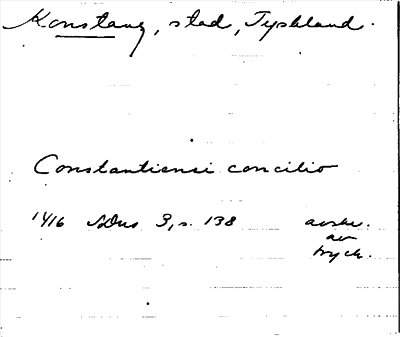 Konstanz, stad, Tyskland.
Constantiensi concilio
1416 SDns 3, s. 138 avskr.
av
tryck.